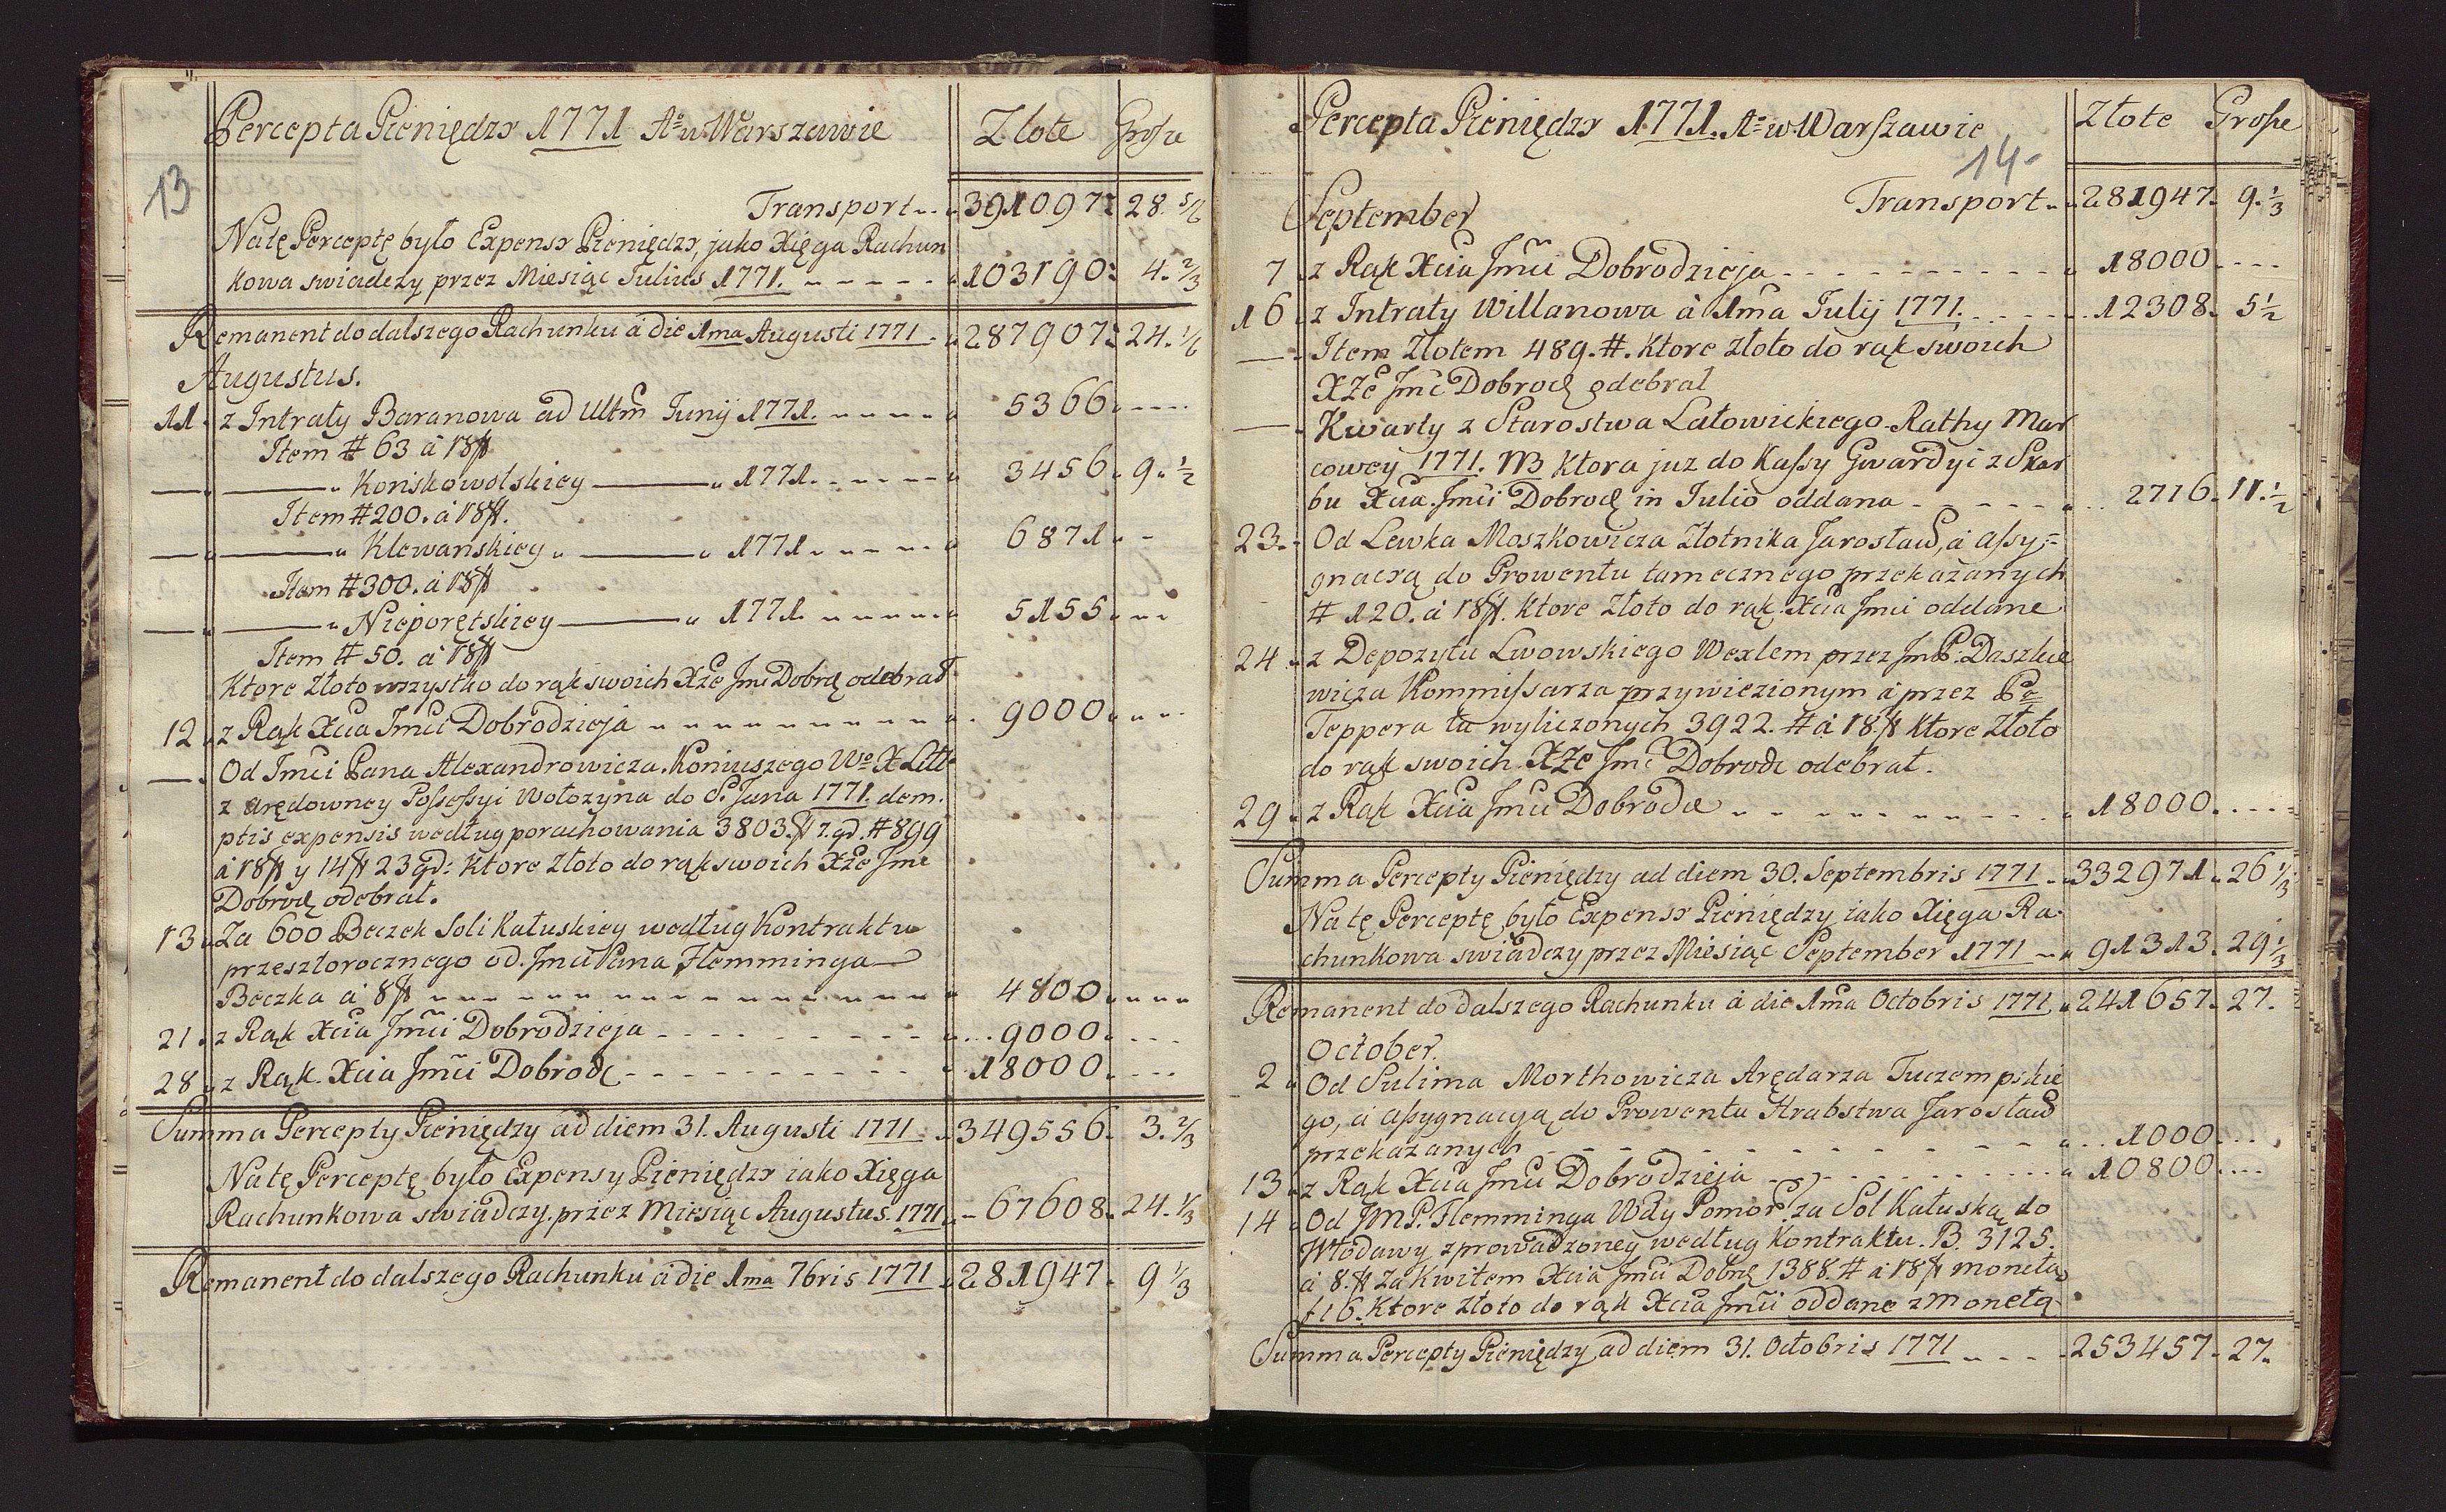 Percepta Pieniędzy 1771 Aº w Warszawie Złote Grosze
13
Transport 391097 28. 5/6
Na tę Perceptę było Expensy Pieniędzy, jako Xięga Rachun
kowa swiadczy przez Miesiąc Julius 1771. 103190 4. 2/3
Remanent do dalszego Rachunku à die 1ma Augusti 1771 287907 24. 1/6
Augustus.
11. z Intraty Baranowa ad Ultm Junij 1771. 5366
Item # 63 à 18 fl
— — Końskowolskiey — 1771. 3456 9. 1/2
Item # 200. à 18 fl.
— — Klewańskiey — 1771 6871
Item # 300. à 18 fl
— — Nieporętskiey — 1771 5155
Item # 50. à 18 fl
Ktore Złoto wszystko do rąk swoich Xże Jmć Dobrodz odebrał
12 z Rąk Xcia Jmci Dobrodzieja 9000
— Od Jmci Pana Alexandrowicza Koniuszego Wº X Litt
z arędowney Possessyi Wołożyna do S. Jana 1771. dem.
ptis expensis według porachowania 3803 fl 7. gd. # 899
à 18 fl y 14 fl 23 gd: Ktore Złoto do rąk swoich Xże Jmć
Dobrodz odebrał.
13 Za 600 Beczek Soli Kałuskiey według Kontraktu
przeszłorocznego od Jmci Pana Flemminga
Beczka à 8 fl 4800
21 z Rąk Xcia Jmci Dobrodzieja 9000
28 z Rąk Xcia Jmci Dobrodz 18000
Summa Percepty Pieniędzy ad diem 31. Augusti 1771 349556 3. 2/3
Na tę Perceptę było Expensy Pieniędzy iako Xięga
Rachunkowa swiadczy przez Miesiąc Augustus 1771 67608 24. 1/3
Remanent do dalszego Rachunku à die 1ma 7bris 1771 281947 9 1/3
Percepta Pieniędzy 1771. Aº w Warszawie Złote Grosze
14
Transport 281947 9. 1/3
September
7 z Rąk Xcia Jmci Dobrodzieja 18000
16 z Intraty Willanowa à 1ma Julij 1771. 12308 5 1/2
— Item Złotem 489. #. Ktore Złoto do rąk swoich
Xże Jmć Dobrodz odebrał
— Kwarty z Starostwa Latowickiego Rathy Mar
cowey 1771. NB Ktora juz do Kassy Gwardyi z Skar
bu Xcia Jmci Dobrodz in Julio oddana 2716 11. 1/2
23. Od Lewka Moszkowicza Złotnika Jarosław, à assy=
gnacyą do Prowentu tamecznego przekazanych
# 120. à 18 fl. Ktore Złoto do rąk Xcia Jmci oddane
24 z Depozytu Lwowskiego Wexlem przez Jm P. Daszkie
wicza Kommissarza przywiezionym à przez Pº
Teppera tu wyliczonych 3922. # à 18. fl Ktore Złoto
do rąk swoich Xże Jmć Dobrodz odebrał.
29 z Rąk Xcia Jmci Dobrodz 18000
Summa Percepty Pieniędzy ad diem 30. Septembris 1771 332971 26 1/3
Na tę Perceptę było Expensy Pieniędzy iako Xięga Ra
chunkowa swiadczy przez Miesiąc September 1771 91313. 29 1/3
Remanent do Dalszego Rachunku à die 1ma Octobris 1771 241657 27.
October.
2 Od Sulima Morthowicza Arędarza Tuczempskie
go, à assygnacyą do Prowentu Hrabstwa Jarosław
przekazanych 1000
13 z Rąk Xcia Jmci Dobrodzieja 10800
14 Od JMP. Flemminga Wdy Pomor: za Sol Kałuską do
Włodawy zprowadzoney według Kontraktu. B. 3125.
à 8. fl za Kwitem Xcia Jmci Dobrodz 1388. # à 18 fl monetą
f 16. Ktore Złoto do rąk Xcia Jmci oddane z monetą
Summa Percepty Pieniędzy ad diem 31. Octobris 1771 253457 27.